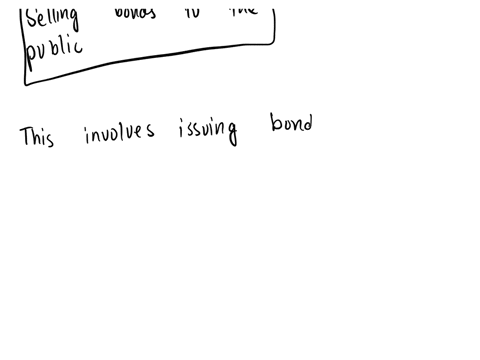 Selling bonds to the
public
This involves issuing bond